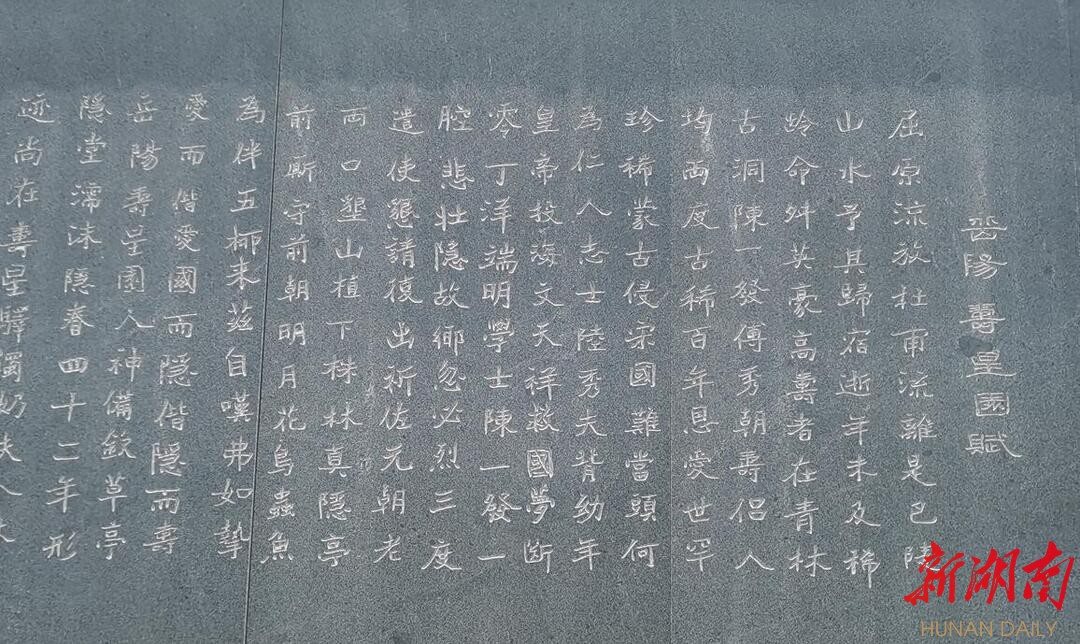 岳陽 壽星園賦
屈原流放杜甫流離是巴陵
山水予其歸宿逝年未及稀
龄命舛英豪高壽者在青林
古洞陳一發傅秀朝壽侣人
均两度古稀百年恩愛世罕
珍稀蒙古侵宋國難當頭何
為仁人志士陸秀夫背幼年
皇帝投海文天祥救國夢斷
零丁洋端明學士陳一發一
腔悲壯隐故鄉忽必烈三度
遣使懇請復出祈佐元朝老
两口墾山植下株林真隱亭
前厮守前朝明月花鳥蟲魚
為伴五柳来茲自嘆弗如摯
愛而偕愛國而隱偕隱而壽
岳陽壽星園人神備欽草亭
隱堂濡沫隱春四十二年形
迹尚在壽星驛獨奶夫人
新湖南
HUNAN DAILY